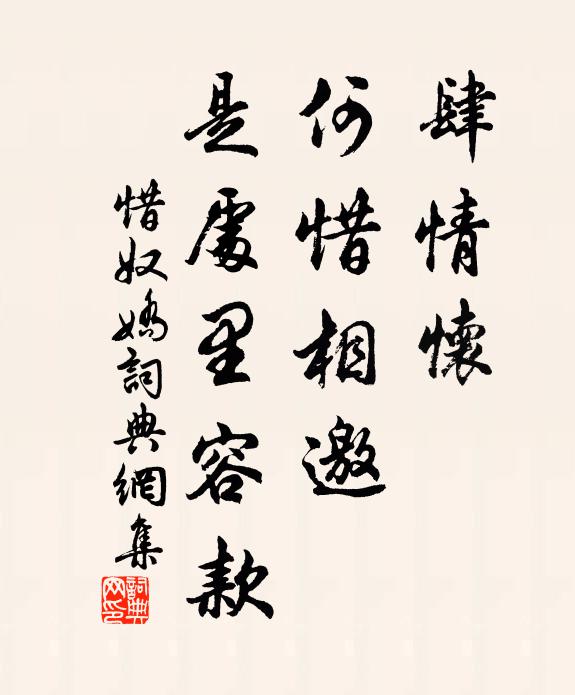 肆情懷
何惜相邀
是處里容款
惜奴嬌詞典網集
詞典網印